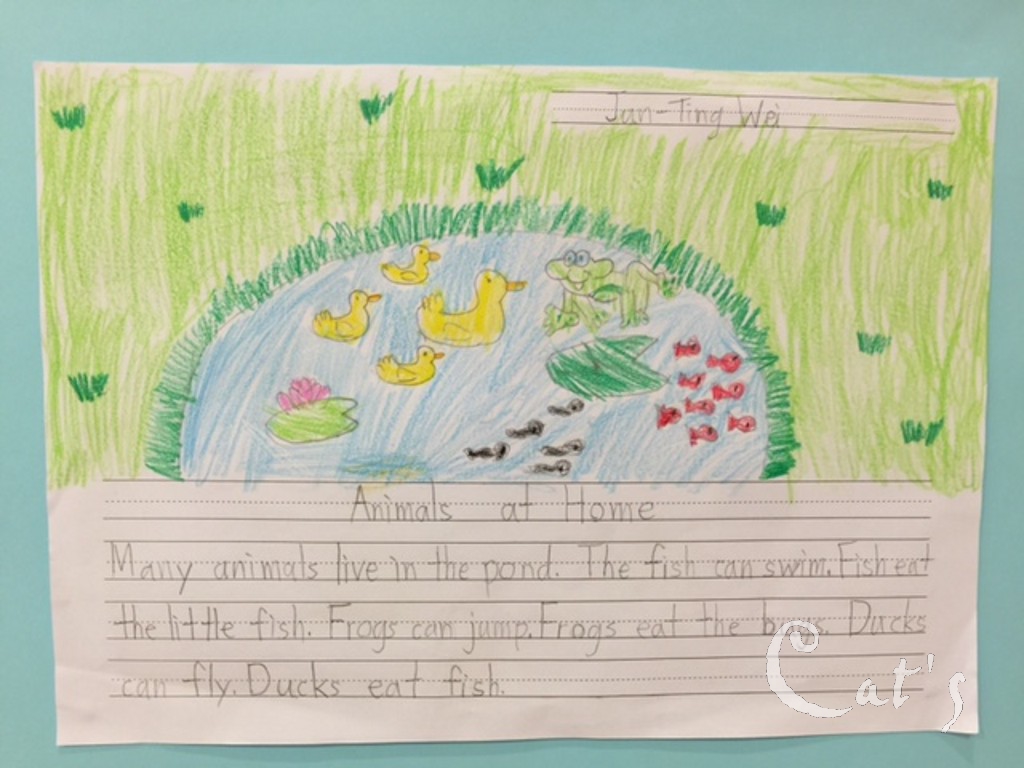 Jan-Ting Wei
Animals at Home
Many animals live in the pond. The fish can swim. Fish eat
the little fish. Frogs can jump. Frogs eat the bugs. Ducks
can fly. Ducks eat fish.
Cat's